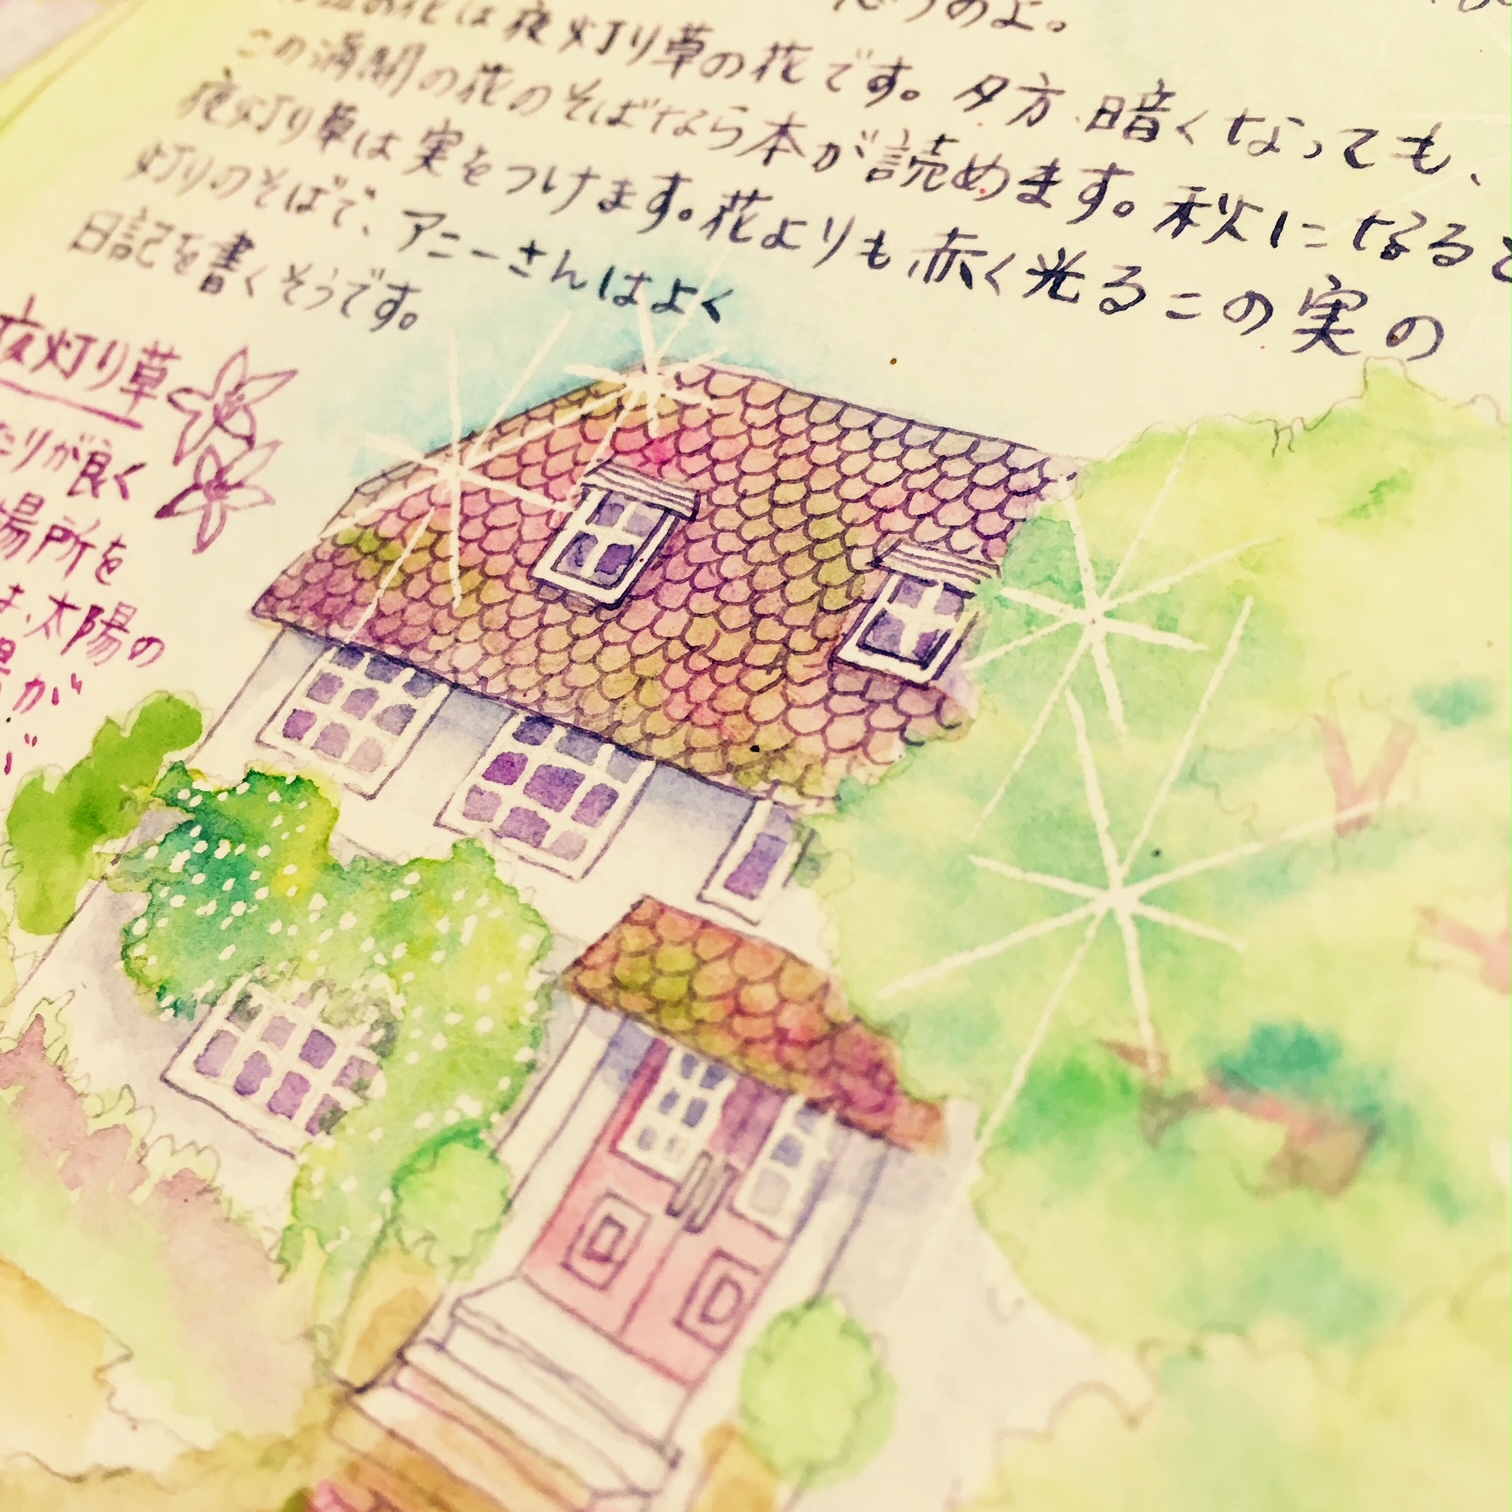 思うのよ。
の花は夜灯り草の花です。夕方、暗くなっても、
この満開の花のそばなら本が読めます。秋になると
夜灯り草は実をつけます。花よりも赤く光るこの実の
灯りのそばで、アニーさんはよく
日記を書くそうです。
夜灯り草
たりが良く
場所を
は、太陽の
が